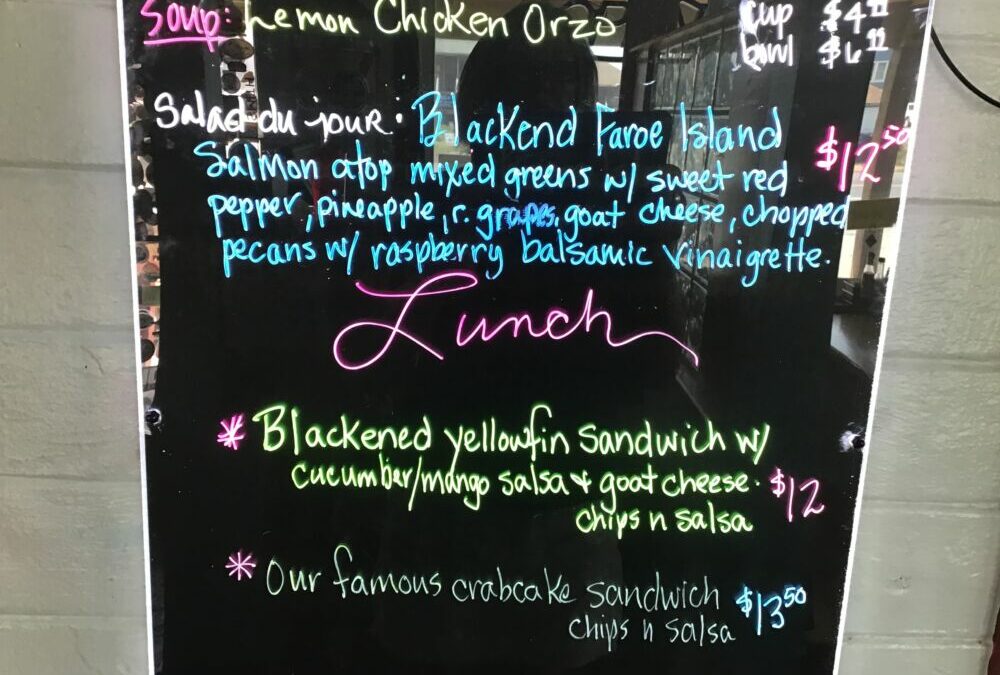 Soup: Lemon Chicken Orzo cup $4
bowl $6
Salad du jour: Blackend Faroe Island
Salmon atop mixed greens w/ sweet red $12.50
pepper, pineapple, r. grapes, goat cheese, chopped
pecans w/ raspberry balsamic vinaigrette.
Lunch
* Blackened yellowfin sandwich w/
cucumber/mango salsa & goat cheese. $12
chips n salsa
* Our famous crabcake sandwich $13.50
chips n salsa